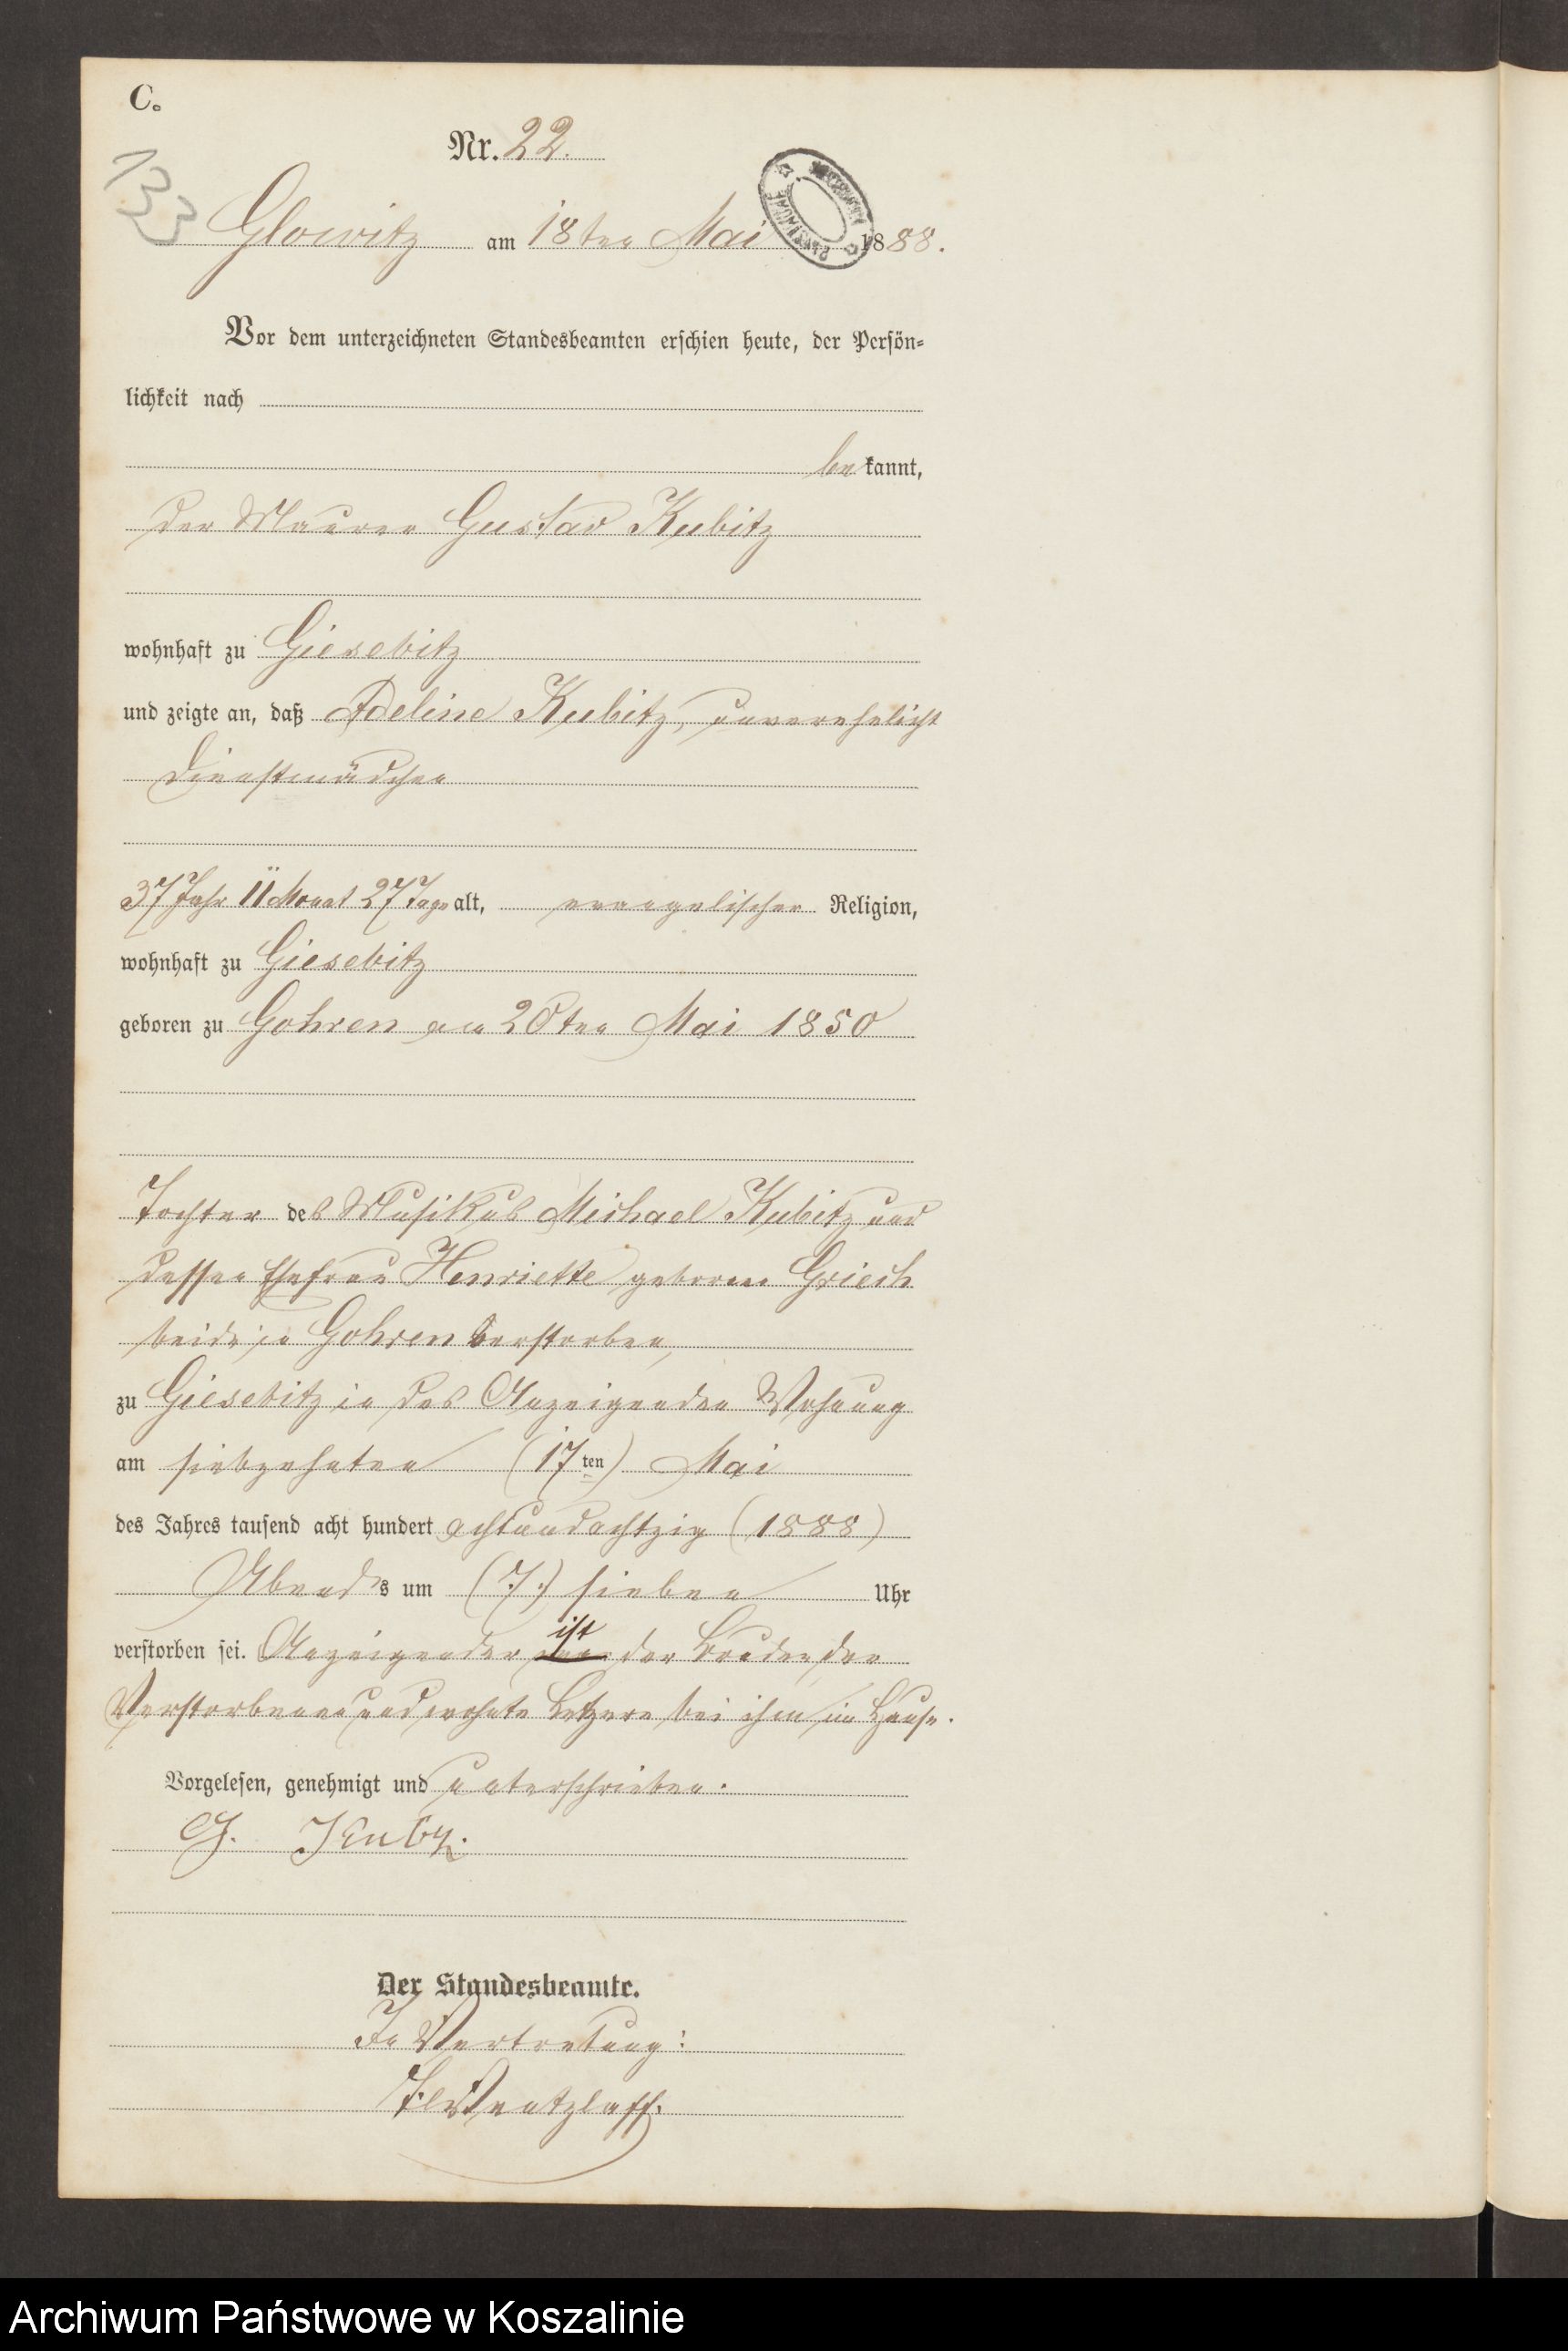 C.
Nr. 22.
133
Glowitz am 18ten Mai 1888.
Vor dem unterzeichneten Standesbeamten erschien heute, der Persön-
lichkeit nach
bekannt,
der Maurer Gustav Kubitz
wohnhaft zu Giesebitz
und zeigte an, daß Adeline Kubitz, unverehelicht
Dienstmädchen
37 Jahr 11 Monat 27 Tage alt, evangelischer Religion,
wohnhaft zu Giesebitz
geboren zu Gohren am 20ten Mai 1850
Tochter des Musikus Michael Kubitz und
dessen Ehefrau Henriette geborene Griech
beide in Gohren verstorben,
zu Giesebitz in des Anzeigenden Wohnung
am siebzehnten (17ten) Mai
des Jahres tausend acht hundert achtundachtzig (1888)
Abends um (7.) sieben Uhr
verstorben sei. Anzeigender ist der Bruder der
Verstorbenen und wohnte Letztere bei ihm im Hause.
Vorgelesen, genehmigt und unterschrieben.
G. Kubtz.
Der Standesbeamte.
In Vertretung:
Wentzlaff.
Archiwum Państwowe w Koszalinie